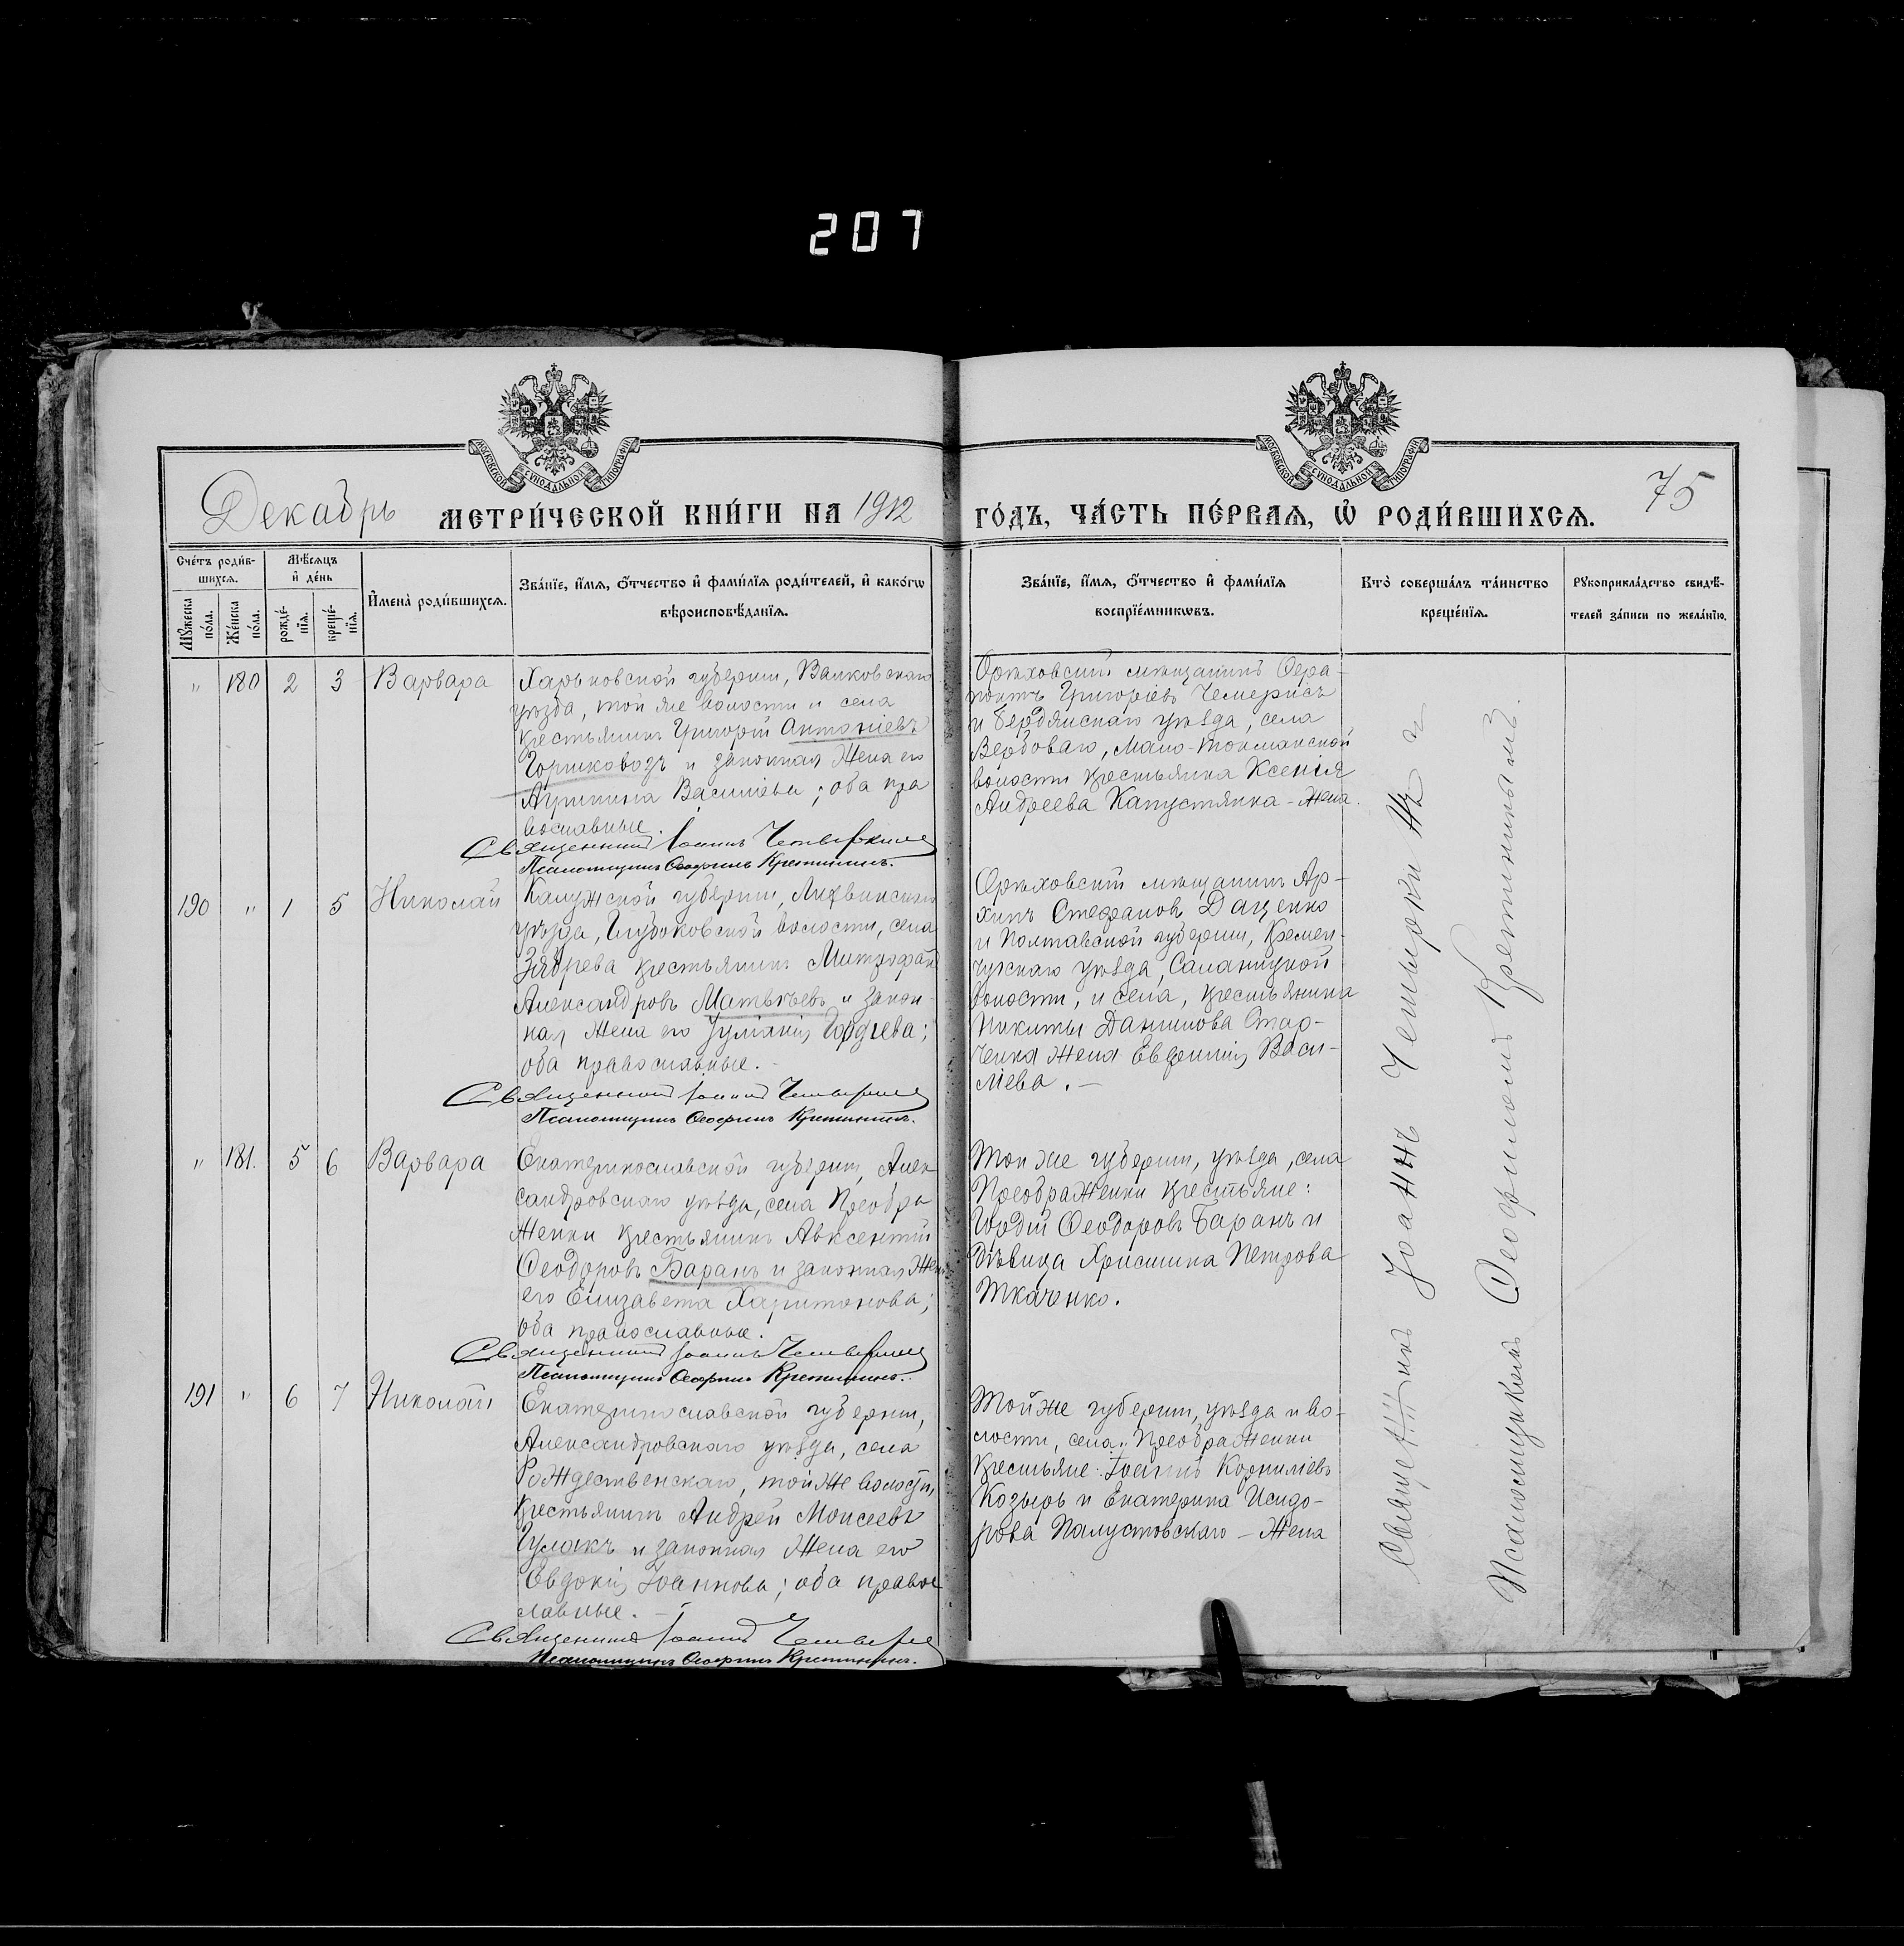 207
МОСКОВСКОЙ СѴНОДАЛЬНОЙ ТИПОГРАФІИ
МОСКОВСКОЙ СѴНОДАЛЬНОЙ ТИПОГРАФІИ
75
Декабрь МЕТРИ́ЧЕСКОЙ КНИ́ГИ НА 1912 ГО́ДЪ, ЧА́СТЬ ПЕ́РВАЯ, Ѡ҆ РОДИ́ВШИХСЯ.
Сче́тъ роди́в-
шихся.
Мꙋ́жеска по́ла.
Же́нска по́ла.
Мѣ́сяцъ и҆ де́нь
рожде́-
нїя.
креще́-
нїя.
И҆мена̀ роди́вшихся.
Зва́нїе, и҆́мя, ѻ҆́тчество и҆ фами́лїя роди́телей, и҆ како́гѡ
вѣроисповѣ́данїя.
Зва́нїе, и҆́мя, ѻ҆́тчество и҆ фами́лїя
воспрїе́мникѡвъ.
Кто̀ соверша́лъ та́инство
креще́нїя.
Рꙋкоприкла́дство свидѣ́-
телей за́писи по жела́нїю.
" 180 2 3 Варвара
Харьковской губерніи, Валковскаго
уѣзда, той же волости и села
крестьянинъ Григорій Антоніевъ
Горшковозъ и законная жена его
Агриппина Васильева; оба пра
вославные.
Священникъ Іоаннъ Четверкинъ
Псаломщикъ Ѳеофилъ Кретининъ.
Орѣховскій мѣщанинъ Ѳера-
понтъ Григоріевъ Чемерисъ
и Бердянскаго уѣзда, села
Вербоваго, Мало-Токмакской
волости крестьянка Ксенія
Андреева Капустянка - жена.
190 " 1 5 Николай
Калужской губерніи, Лихвинскаго
уѣзда, волости, села
Зябрева крестьянинъ Митрофанъ
Александровъ Матвѣевъ и закон-
ная жена его Іуліанія Гордіева;
оба православные. -
Священникъ Іоаннъ
Псаломщикъ Ѳеофилъ Кретининъ.
Орѣховскій мѣщанинъ Ар-
хипъ Стефановъ Даценко
и Полтавской губерніи, Кремен-
чугскаго уѣзда, Саланицкой
волости, и села, крестьянина
Никиты Данилова Стар-
ченка жена Евфимія Васи-
ліева. -
" 181. 5 6 Варвара
Екатеринославской губерніи, Алек
сандровскаго уѣзда, села Преобра
женки крестьянинъ Авксентій
Ѳеодоровъ Баранъ и законная жена
его Елизавета Харитонова;
оба православные.
Священникъ Іоаннъ
Псаломщикъ Ѳеофилъ Кретининъ.
Той же губерніи, уѣзда, села
Преображенки крестьяне:
Гордій Ѳеодоровъ Баранъ и
дѣвица Христина Петрова
Ткаченко.
191 " 6 7 Николай
Екатеринославской губерніи,
Александровскаго уѣзда, села
Рождественскаго, той же волости,
крестьянинъ Андрей Моисеевъ
Гулакъ и законная жена его
Евдокія Іоаннова; оба право
славные. -
Священникъ Іоаннъ
Псаломщикъ Ѳеофилъ Кретининъ.
Той же губерніи, уѣзда и во-
лости, села Преображенки
крестьяне: Іоаннъ Корниліевъ
Козырь и Екатерина Исидо-
рова Палустовскаго - жена
Священникъ Іоаннъ
Псаломщикомъ Ѳеофиломъ Кретининымъ.